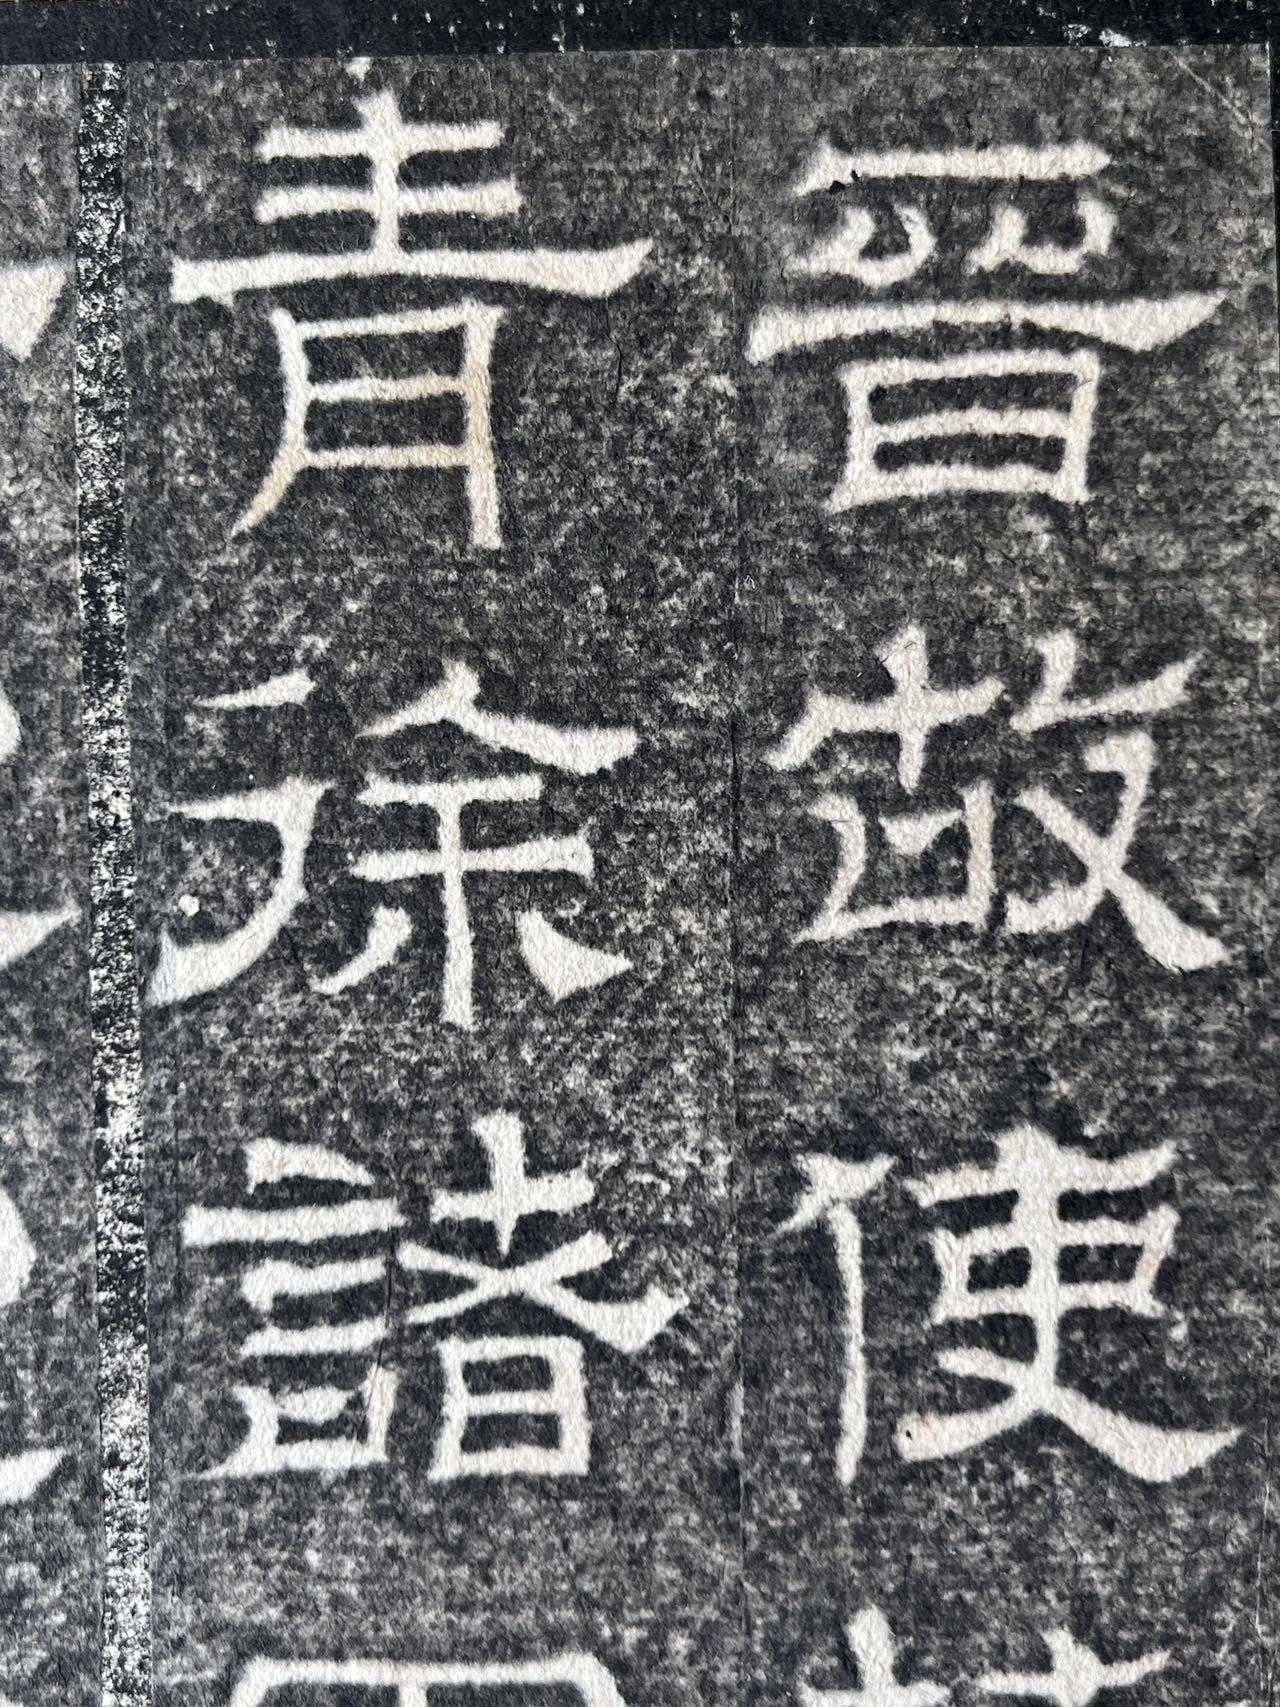 晉故使
青徐諸